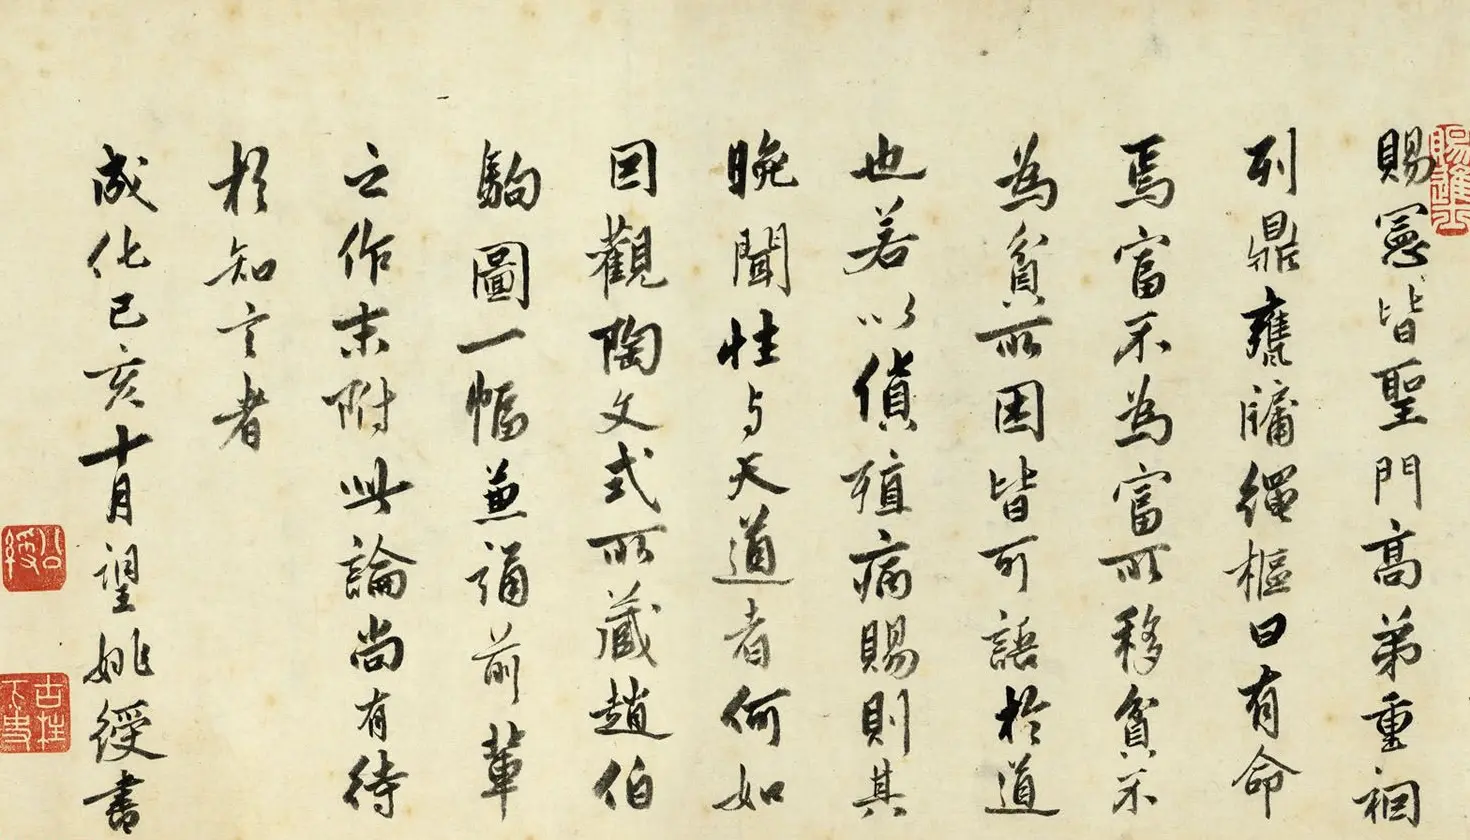 賜憲皆聖門高弟重裀
列鼎甕牖繩樞曰有命
焉富不為富所移貧不
為貧所困皆可語於道
也若以貨殖病賜則其
晚聞性與天道者何如
因觀陶文式所藏趙伯
駒圖一幅兼誦前輩
之作末附此論尚有待
於知言者
成化己亥十月望姚綬書
賜進士
公綬
古柱下史